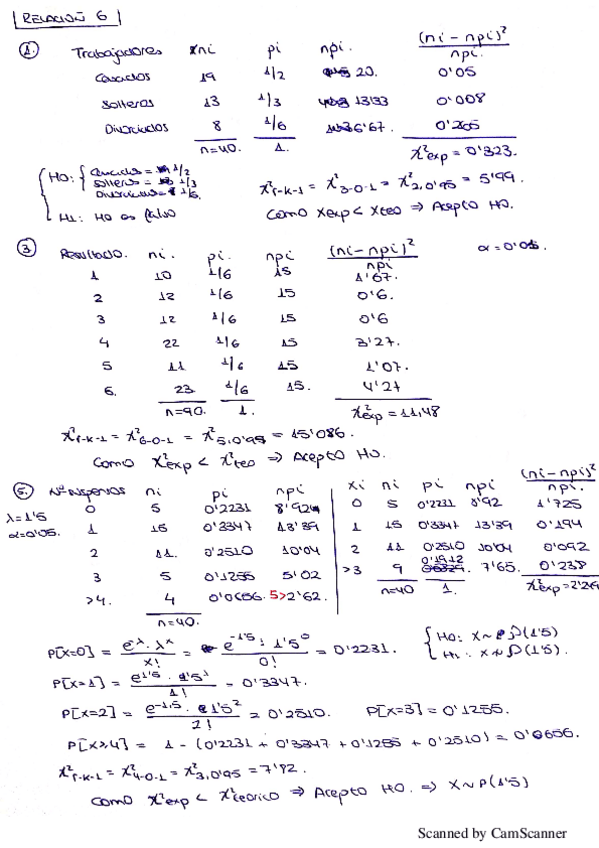 RELACIÓN 6
1. Trabajadores xni pi npi. (ni - npi)² / npi.
Casados 19 1/2 20. 0'05
Solteros 13 1/3 13'33 0'008
Divorciados 8 1/6 6'67. 0'265
n=40. 1. χ²exp = 0'323.
H0: Casados = 1/2
Solteros = 1/3
Divorciados = 1/6.
H1: H0 es falso
χ²r-k-1 = χ²3-0-1 = χ²2,0'95 = 5'99.
Como χexp < χteo ⇒ Acepto H0.
3. Resultado. ni. pi. npi (ni - npi)² / npi α = 0'05.
1 10 1/6 15 1'67.
2 12 1/6 15 0'6.
3 12 1/6 15 0'6
4 22 1/6 15 3'27.
5 11 1/6 15 1'07.
6. 23 1/6 15. 4'27
n=90. 1. χ²exp = 11,48
χ²r-k-1 = χ²6-0-1 = χ²5,0'95 = 15'086.
Como χ²exp < χ²teo ⇒ Acepto H0.
5. Nº Nísperos ni pi npi
λ=1'5
α=0'05.
0 5 0'2231 8'924
1 15 0'3347 13'39
2 11. 0'2510 10'04
3 5 0'1255 5'02
>4. 4 0'0656. 5>2'62.
n=40.
xi ni pi npi (ni - npi)² / npi.
0 5 0'2231 8'92 1'725
1 15 0'3347 13'39 0'194
2 11 0'2510 10'04 0'092
>3 9 0'1912 7'65. 0'238
n=40 1. χ²exp = 2'249
P[X=0] = e^λ · λ^x / x! = e^-1'5 · 1'5⁰ / 0! = 0'2231.
H0: X∼P(1'5)
H1: X≁P(1'5).
P[X=1] = e^1'5 · 1'5¹ / 1! = 0'3347.
P[X=2] = e^-1,5 · 1'5² / 2! = 0'2510. P[X=3] = 0'1255.
P[X≥4] = 1 - (0'2231 + 0'3347 + 0'1255 + 0'2510) = 0'0656.
χ²r-k-1 = χ²4-0-1 = χ²3,0'95 = 7'82.
Como χ²exp < χ²teórico ⇒ Acepto H0. ⇒ X∼P(1'5)
Scanned by CamScanner